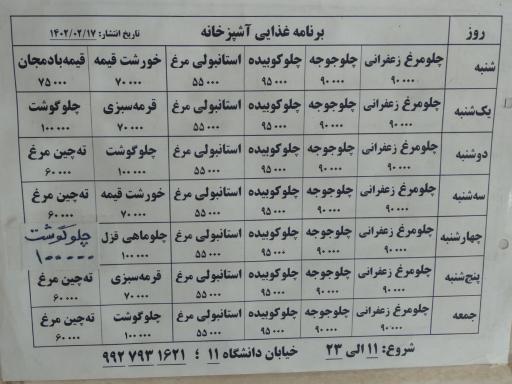 روز برنامه غذایی آشپزخانه تاریخ انتشار: ۱۴۰۲/۰۲/۱۷
شنبه چلومرغ زعفرانی چلوجوجه چلوکوبیده استانبولی مرغ خورشت قیمه قیمه‌بادمجان
۹۰۰۰۰ ۹۰۰۰۰ ۹۵۰۰۰ ۵۵۰۰۰ ۷۰۰۰۰ ۷۵۰۰۰
یک‌شنبه چلومرغ زعفرانی چلوجوجه چلوکوبیده استانبولی مرغ قرمه‌سبزی چلوگوشت
۹۰۰۰۰ ۹۰۰۰۰ ۹۵۰۰۰ ۵۵۰۰۰ ۷۰۰۰۰ ۱۰۰۰۰۰
دوشنبه چلومرغ زعفرانی چلوجوجه چلوکوبیده استانبولی مرغ چلوگوشت ته‌چین مرغ
۹۰۰۰۰ ۹۰۰۰۰ ۹۵۰۰۰ ۵۵۰۰۰ ۱۰۰۰۰۰ ۶۰۰۰۰
سه‌شنبه چلومرغ زعفرانی چلوجوجه چلوکوبیده استانبولی مرغ خورشت قیمه ته‌چین مرغ
۹۰۰۰۰ ۹۰۰۰۰ ۹۵۰۰۰ ۵۵۰۰۰ ۷۰۰۰۰ ۶۰۰۰۰
چهارشنبه چلومرغ زعفرانی چلوجوجه چلوکوبیده استانبولی مرغ چلوماهی قزل چلوگوشت
۹۰۰۰۰ ۹۰۰۰۰ ۹۵۰۰۰ ۵۵۰۰۰ ۱۰۰۰۰۰ ۱۰۰۰۰۰
پنج‌شنبه چلومرغ زعفرانی چلوجوجه چلوکوبیده استانبولی مرغ قرمه‌سبزی ته‌چین مرغ
۹۰۰۰۰ ۹۰۰۰۰ ۹۵۰۰۰ ۵۵۰۰۰ ۷۰۰۰۰ ۶۰۰۰۰
جمعه چلومرغ زعفرانی چلوجوجه چلوکوبیده استانبولی مرغ چلوگوشت ته‌چین مرغ
۹۰۰۰۰ ۹۰۰۰۰ ۹۵۰۰۰ ۵۵۰۰۰ ۱۰۰۰۰۰ ۶۰۰۰۰
شروع: ۱۱ الی ۲۳ خیابان دانشگاه ۱۱ ؛ ۱۶۲۱ ۷۹۳ ۹۹۲